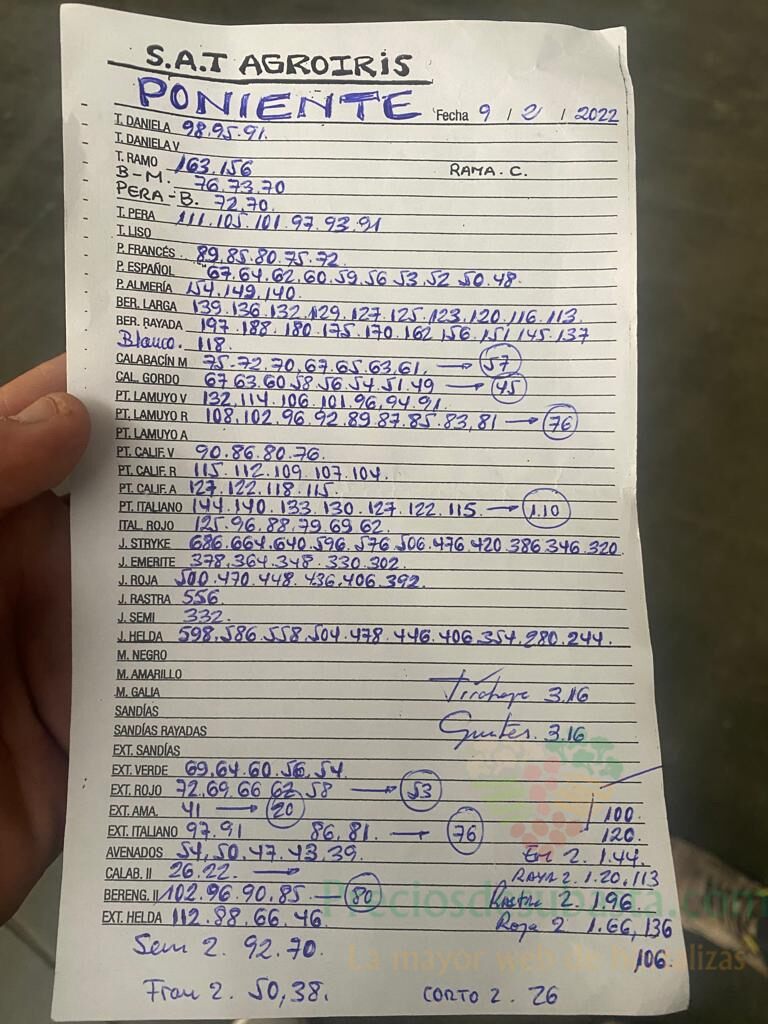 S.A.T AGROIRIS
PONIENTE Fecha 9 / 2 / 2022
T. DANIELA 98.95.91.
T. DANIELA V
T. RAMO 163.156 RAMA. C.
B-M. 76.73.70
PERA-B. 72.70.
T. PERA 111.105.101.97.93.91
T. LISO
P. FRANCÉS 89.85.80.75.72
P. ESPAÑOL 67.64.62.60.59.56.53.52.50.48.
P. ALMERÍA 154.149.140.
BER. LARGA 139.136.132.129.127.125.123.120.116.113.
BER. RAYADA 197.188.180.175.170.162.156.151.145.137
Blanco. 118.
CALABACÍN M 75.72.70,67.65.63,61. → 57
CAL. GORDO 67.63.60.58.56.54.51.49 → 45
PT. LAMUYO V 132,114.106.101.96,94.91.
PT. LAMUYO R 108.102.96.92.89.87.85.83,81 → 76
PT. LAMUYO A
PT. CALIF. V 90.86.80.76.
PT. CALIF. R 115.112.109.107.104.
PT. CALIF. A 127.122.118.115.
PT. ITALIANO 144.140.133.130.127.122.115. → 1.10
ITAL. ROJO 125.96.88,79.69.62.
J. STRYKE 686.664.640.596.576.506.476.420.386.346.320.
J. EMERITE 378,364.348.330.302.
J. ROJA 500.470.448.436,406.392.
J. RASTRA 556.
J. SEMI 332.
J. HELDA 598,586.558.504.478.446.406.354.280.244.
M. NEGRO
M. AMARILLO
M. GALIA 3.16
SANDÍAS
SANDÍAS RAYADAS 3.16
EXT. SANDÍAS
EXT. VERDE 69.64.60.56.54.
EXT. ROJO 72.69.66.62.58 → 53
EXT. AMA. 41 → 20 100.
EXT. ITALIANO 97.91 86,81. → 76 120.
AVENADOS 54,50.47.43.39. Em 2. 1.44.
CALAB. II 26.22. → RAYA 2. 1.20,113
BERENG. II 102.96.90.85 → 80 Rastra 2. 196
EXT. HELDA 112.88.66.46. Roja 2 1.66,136
Preciosdesubasta.com
Sem 2. 92.70. 106
La mayor web de hortalizas
Fran 2. 50,38. CORTO 2. 26